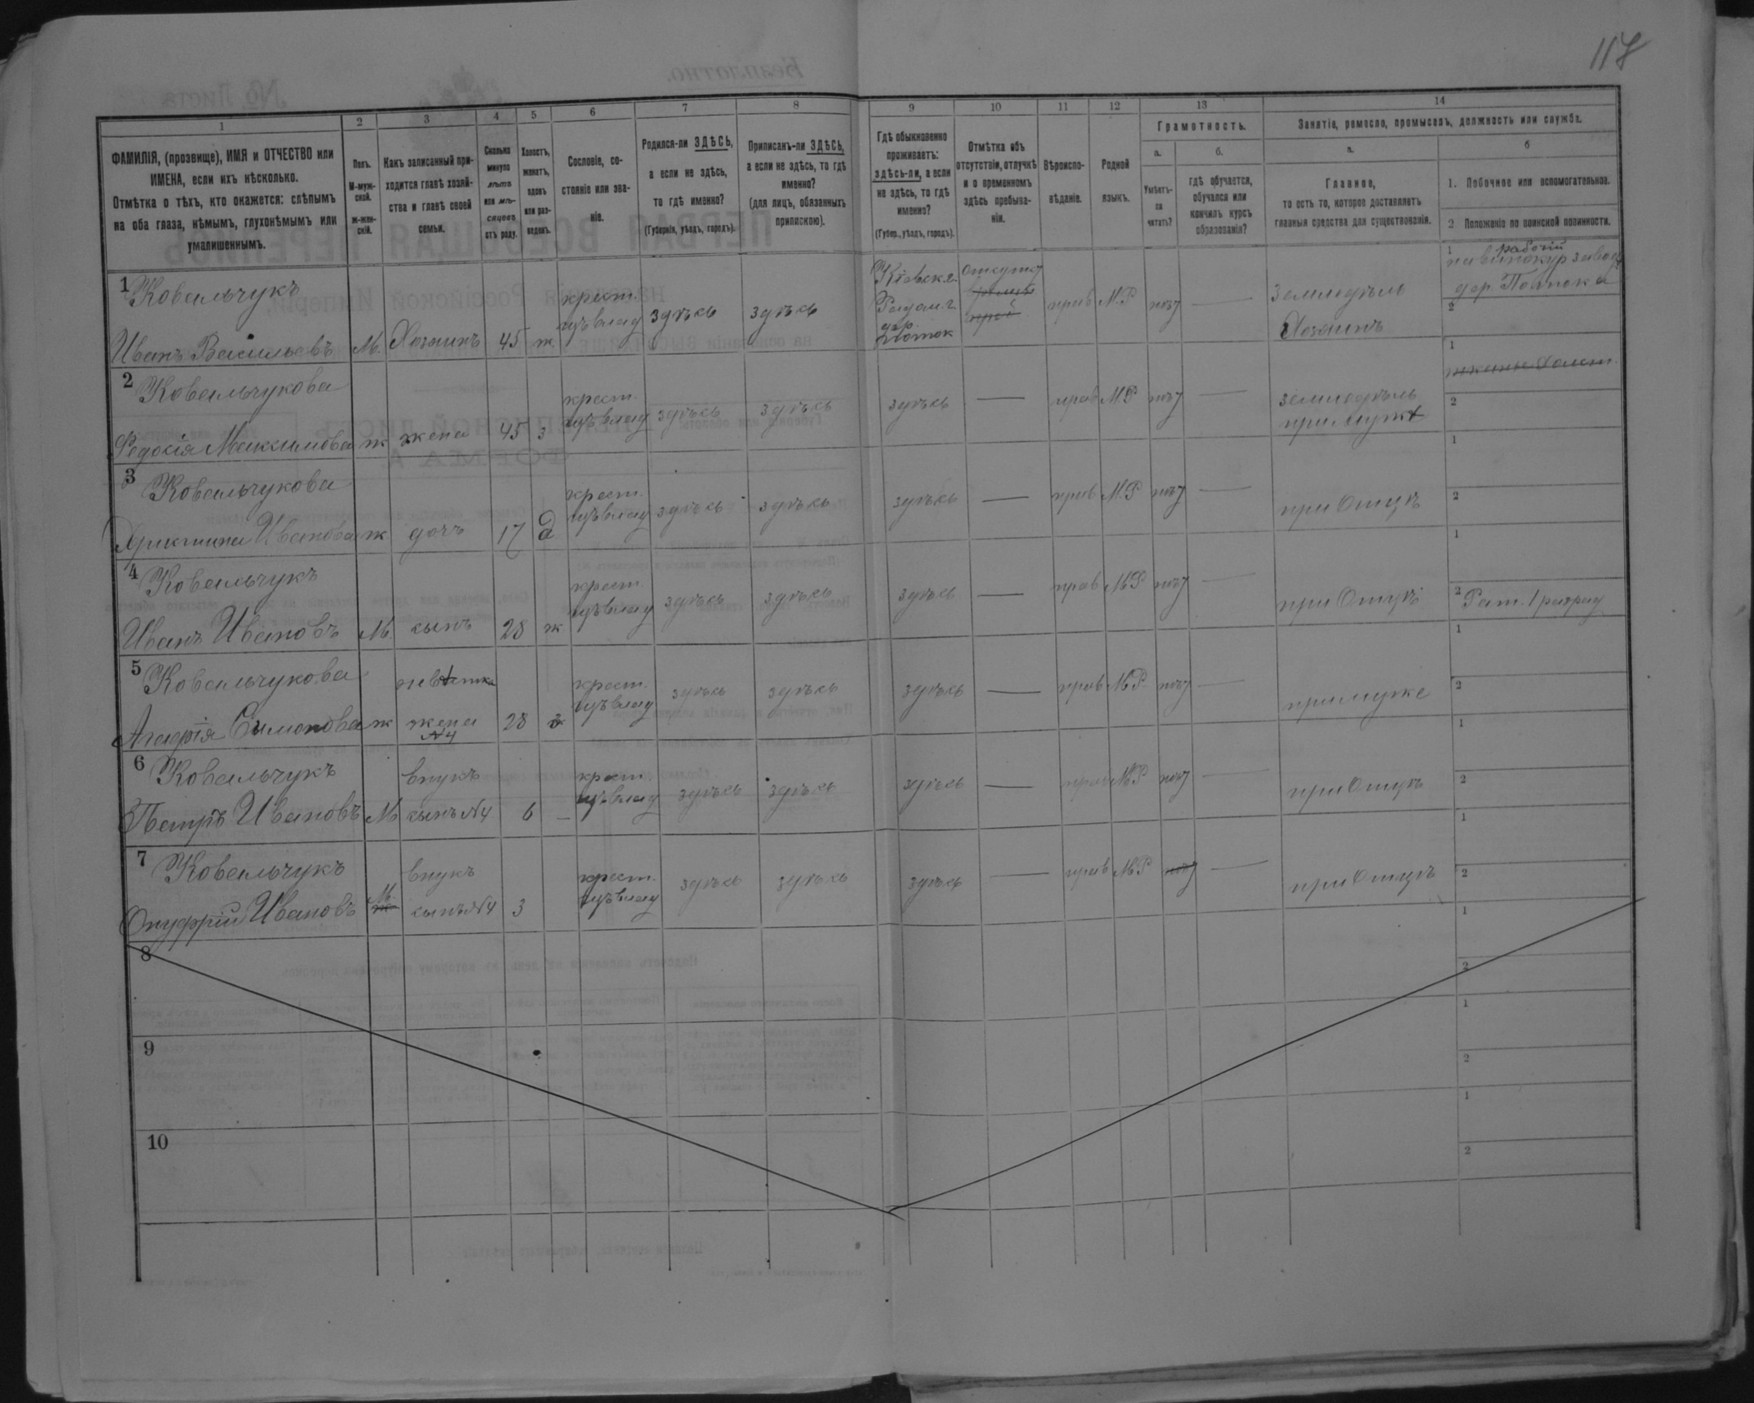 117
1
2
3
4
5
6
7
8
9
10
11
12
13
14
ФАМИЛІЯ, (прозвище), ИМЯ и ОТЧЕСТВО или
ИМЕНА, если ихъ нѣсколько.
Отмѣтка о тѣхъ, кто окажется: слѣпымъ
на оба глаза, нѣмымъ, глухонѣмымъ или
умалишеннымъ.
Полъ.
М-муж-
ской.
Ж-жен-
скій.
Какъ записанный при-
ходится главѣ хозяй-
ства и главѣ своей
семьи.
Сколько
минуло
лѣтъ
или мѣ-
сяцевъ
отъ роду.
Холостъ,
женатъ,
вдовъ
или раз-
веденъ.
Сословіе, со-
стояніе или зва-
ніе.
Родился-ли ЗДѢСЬ,
а если не здѣсь,
то гдѣ именно?
(Губернія, уѣздъ, городъ).
Приписанъ-ли ЗДѢСЬ,
а если не здѣсь, то гдѣ
именно?
(для лицъ, обязанныхъ
припискою).
Гдѣ обыкновенно
проживаетъ:
здѣсь-ли, а если
не здѣсь, то гдѣ
именно?
(Губер., уѣздъ, городъ).
Отмѣтка объ
отсутствіи, отлучкѣ
и о временномъ
здѣсь пребыва-
ніи.
Вѣроиспо-
вѣданіе.
Родной
языкъ.
Грамотность.
а.
Умѣетъ-
ли
читать?
б.
гдѣ обучается,
обучался или
кончилъ курсъ
образованія?
Занятія, ремесло, промыселъ, должность или служба.
а.
Главное,
то есть то, которое доставляетъ
главныя средства для существованія.
б
1. Побочное или вспомогательное.
2 Положеніе по воинской повинности.
1 Ковальчукъ
Иванъ Васильевъ М. Хозяинъ 45 ж
крест.
здѣсь здѣсь
Кіевская
дер.
прав М.Р
земледѣль
Хозяинъ
1 рабочій
дер.
2
2 Ковальчукова
Федосія Максимова ж жена 45 з
крест.
здѣсь здѣсь здѣсь — прав М.Р —
земледѣль
при мужѣ
1
2
3 Ковальчукова
Христина Иванова ж дочъ 17 д
крест.
здѣсь здѣсь здѣсь — прав М.Р —
при Отцѣ
1
2
4 Ковальчукъ
Иванъ Ивановъ М сынъ 28 ж
крест.
здѣсь здѣсь здѣсь — прав М.Р —
при Отцѣ
1
2 Рат. 1 разряд
5 Ковальчукова
Агафія Симонова ж невѣстка
жена
№4
28
крест.
здѣсь здѣсь здѣсь — прав М.Р —
при мужѣ
1
2
6 Ковальчукъ
Петръ Ивановъ М внукъ
сынъ №4 6 —
крест.
здѣсь здѣсь здѣсь — прав М.Р —
при Отцѣ
1
2
7 Ковальчукъ
Онуфрій Ивановъ М внукъ
сынъ №4 3
крест.
здѣсь здѣсь здѣсь — прав М.Р —
при Отцѣ
1
2
8
1
2
9
1
2
10
1
2